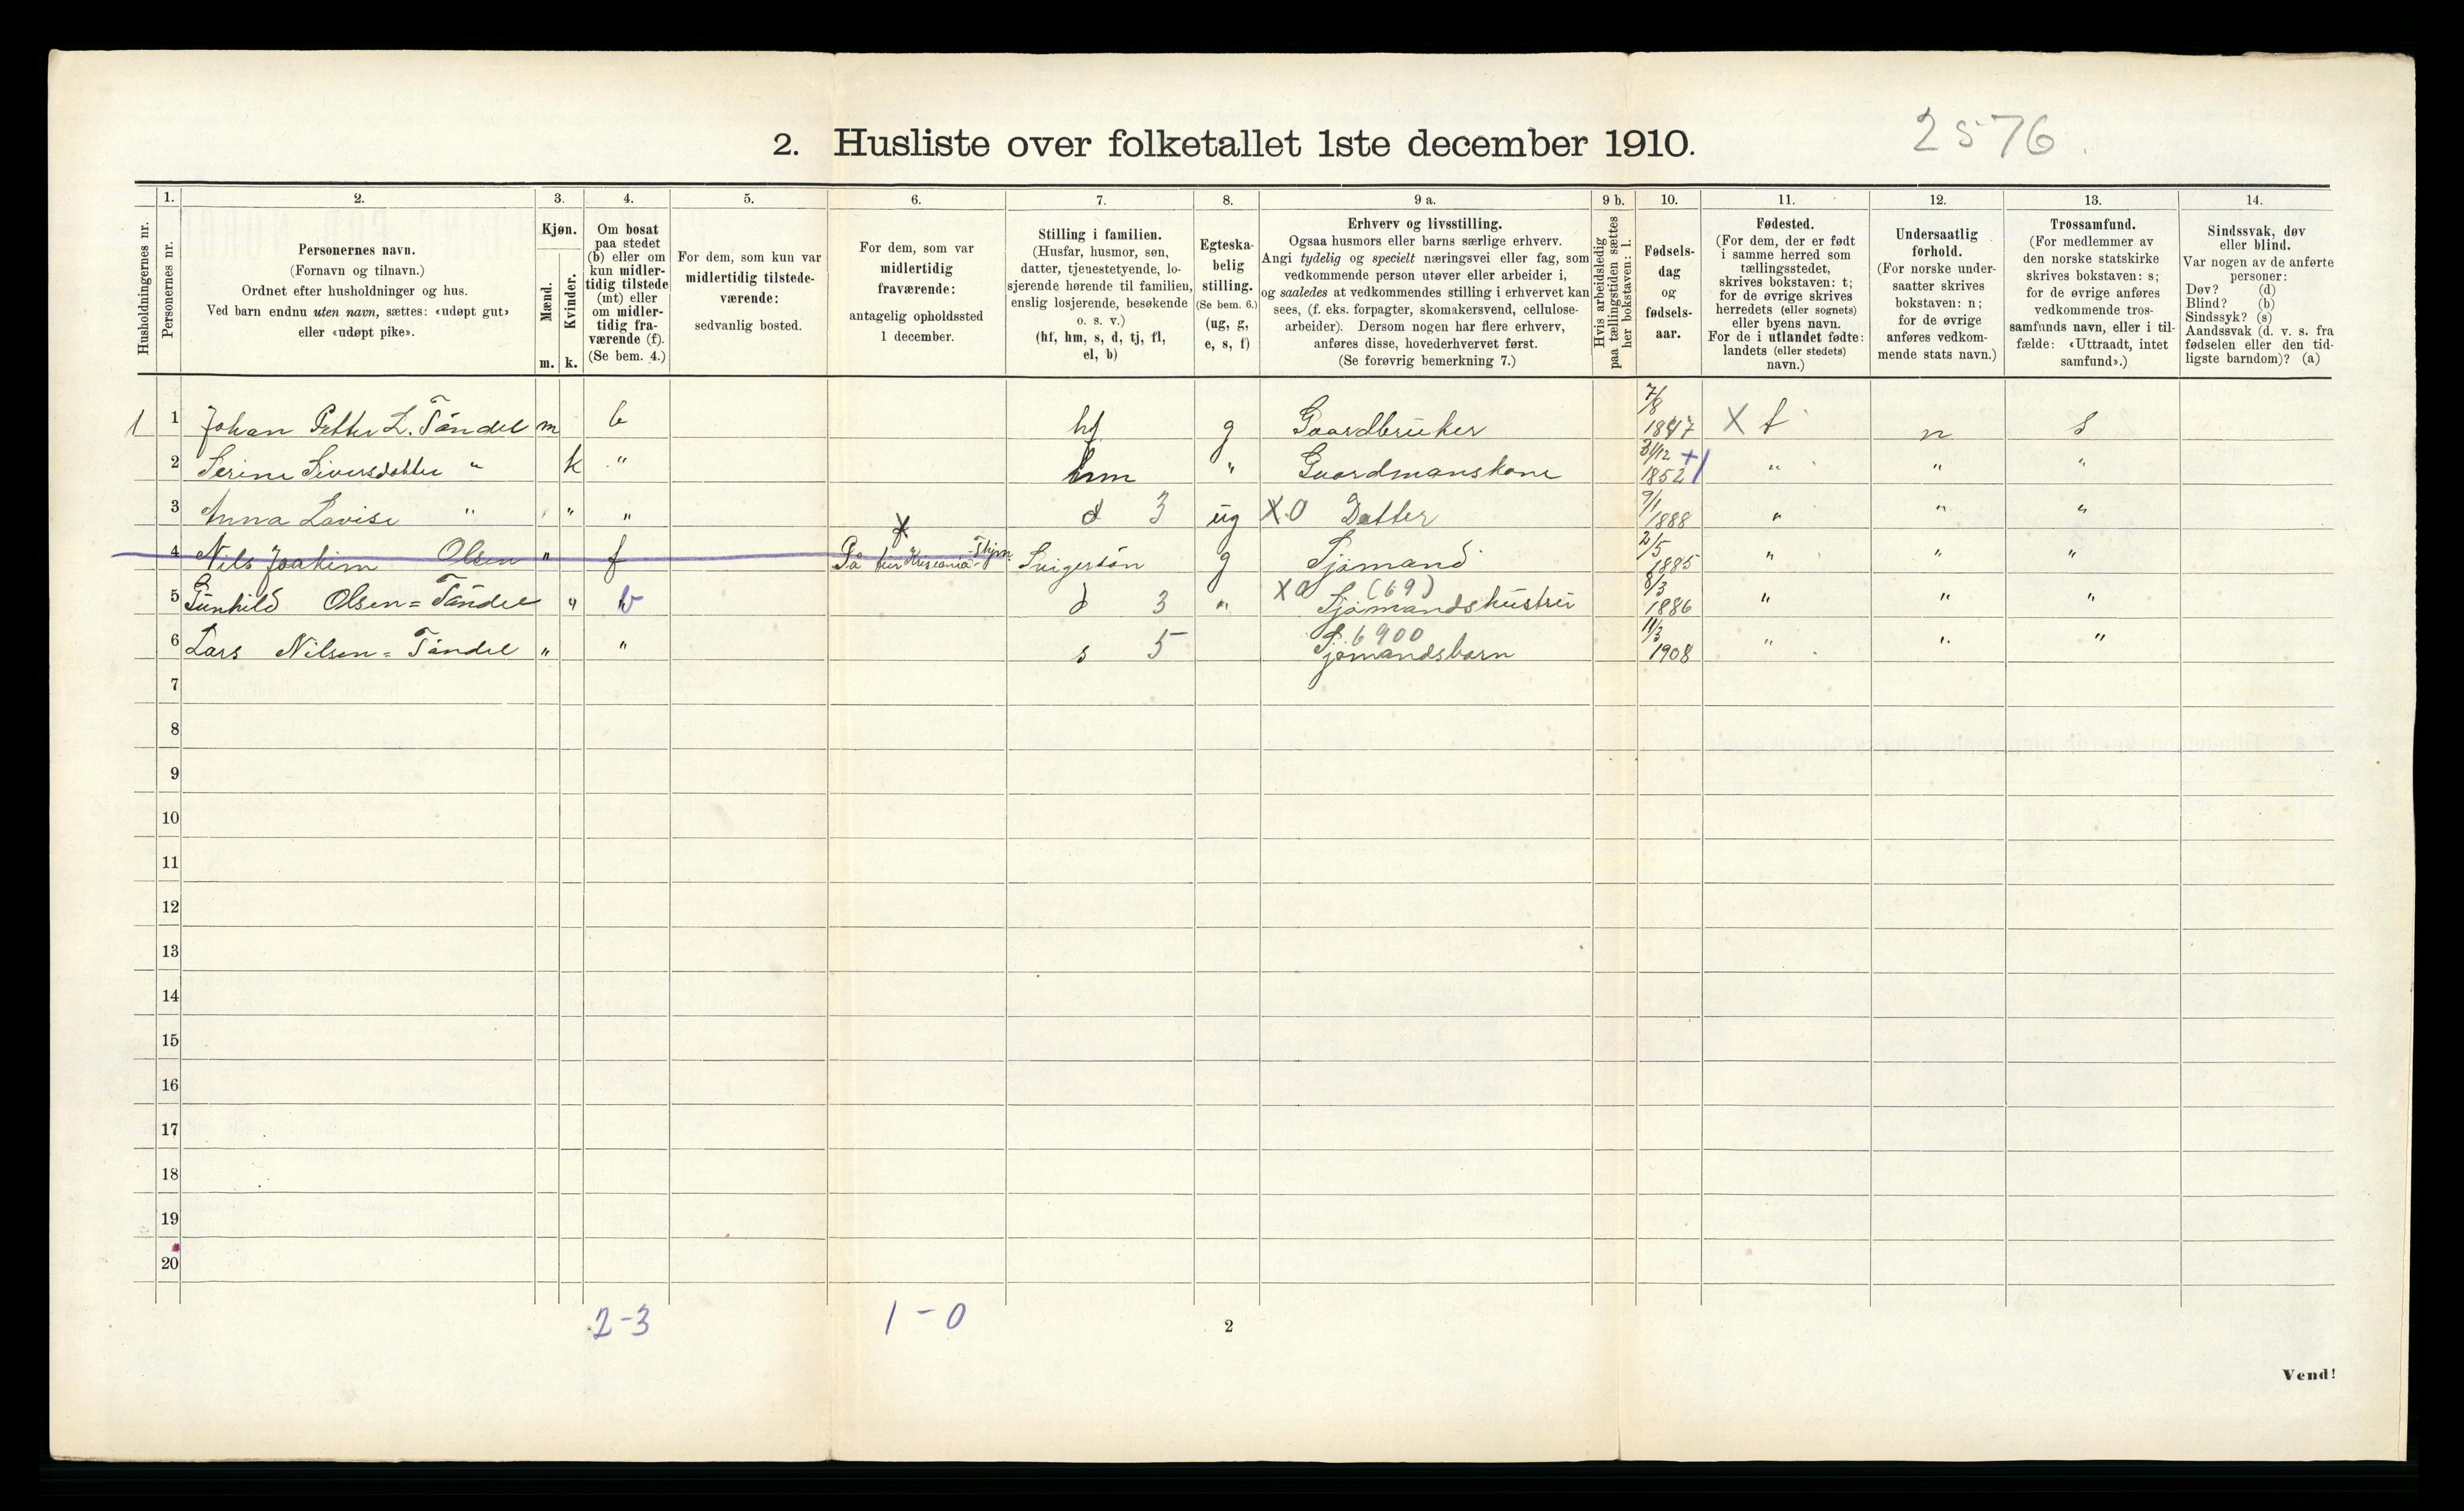 2. Husliste over folketallet 1ste december 1910.
2576.
1. 2. 3. 4. 5. 6. 7. 8. 9 a. 9 b. 10. 11. 12. 13. 14.
Husholdningernes nr.
Personernes nr.
Personernes navn.
(Fornavn og tilnavn.)
Ordnet efter husholdninger og hus.
Ved barn endnu uten navn, sættes: «udøpt gut»
eller «udøpt pike».
Kjøn.
Mænd.
Kvinder.
m. k.
Om bosat
paa stedet
(b) eller om
kun midler-
tidig tilstede
(mt) eller
om midler-
tidig fra-
værende (f).
(Se bem. 4.)
For dem, som kun var
midlertidig tilstede-
værende:
sedvanlig bosted.
For dem, som var
midlertidig
fraværende:
antagelig opholdssted
1 december.
Stilling i familien.
(Husfar, husmor, søn,
datter, tjenestetyende, lo-
sjerende hørende til familien,
enslig losjerende, besøkende
o. s. v.)
(hf, hm, s, d, tj, fl,
el, b)
Egteska-
belig
stilling.
(Se bem. 6.)
(ug, g,
e, s, f)
Erhverv og livsstilling.
Ogsaa husmors eller barns særlige erhverv.
Angi tydelig og specielt næringsvei eller fag, som
vedkommende person utøver eller arbeider i,
og saaledes at vedkommendes stilling i erhvervet kan
sees, (f. eks. forpagter, skomakersvend, cellulose-
arbeider). Dersom nogen har flere erhverv,
anføres disse, hovederhvervet først.
(Se forøvrig bemerkning 7.)
Hvis arbeidsledig
paa tællingstiden sættes
her bokstaven: l.
Fødsels-
dag
og
fødsels-
aar.
Fødested.
(For dem, der er født
i samme herred som
tællingsstedet,
skrives bokstaven: t;
for de øvrige skrives
herredets (eller sognets)
eller byens navn.
For de i utlandet fødte:
landets (eller stedets)
navn.)
Undersaatlig
forhold.
(For norske under-
saatter skrives
bokstaven: n;
for de øvrige
anføres vedkom-
mende stats navn.)
Trossamfund.
(For medlemmer av
den norske statskirke
skrives bokstaven: s;
for de øvrige anføres
vedkommende tros-
samfunds navn, eller i til-
fælde: «Uttraadt, intet
samfund».)
Sindssvak, døv
eller blind.
Var nogen av de anførte
personer:
Døv? (d)
Blind? (b)
Sindssyk? (s)
Aandssvak (d. v. s. fra
fødselen eller den tid-
ligste barndom)? (a)
1 1 Johan Petter L. Tåndel m b hf g Gaardbruker 7/8 1847 X t n s
2 Serine Siversdatter " k " hm " Gaardmanskone 31/12 1852 + " " "
3 Anna Lovise " " " d 3 ug X0 Datter 9/1 1888 " " "
4 Nils Joakim Olsen " f X På Svigersön g Sjömand 2/5 1885 " " "
5 Gunhild Olsen = Tåndel " b d 3 " X0 (69) Sjömandshustru 8/3 1886 " " "
6 Lars Nilsen = Tåndel " " s 5 6900 Sjömandsbarn 11/3 1908 " " "
7
8
9
10
11
12
13
14
15
16
17
18
19
20
2-3 1-0
2
Vend!